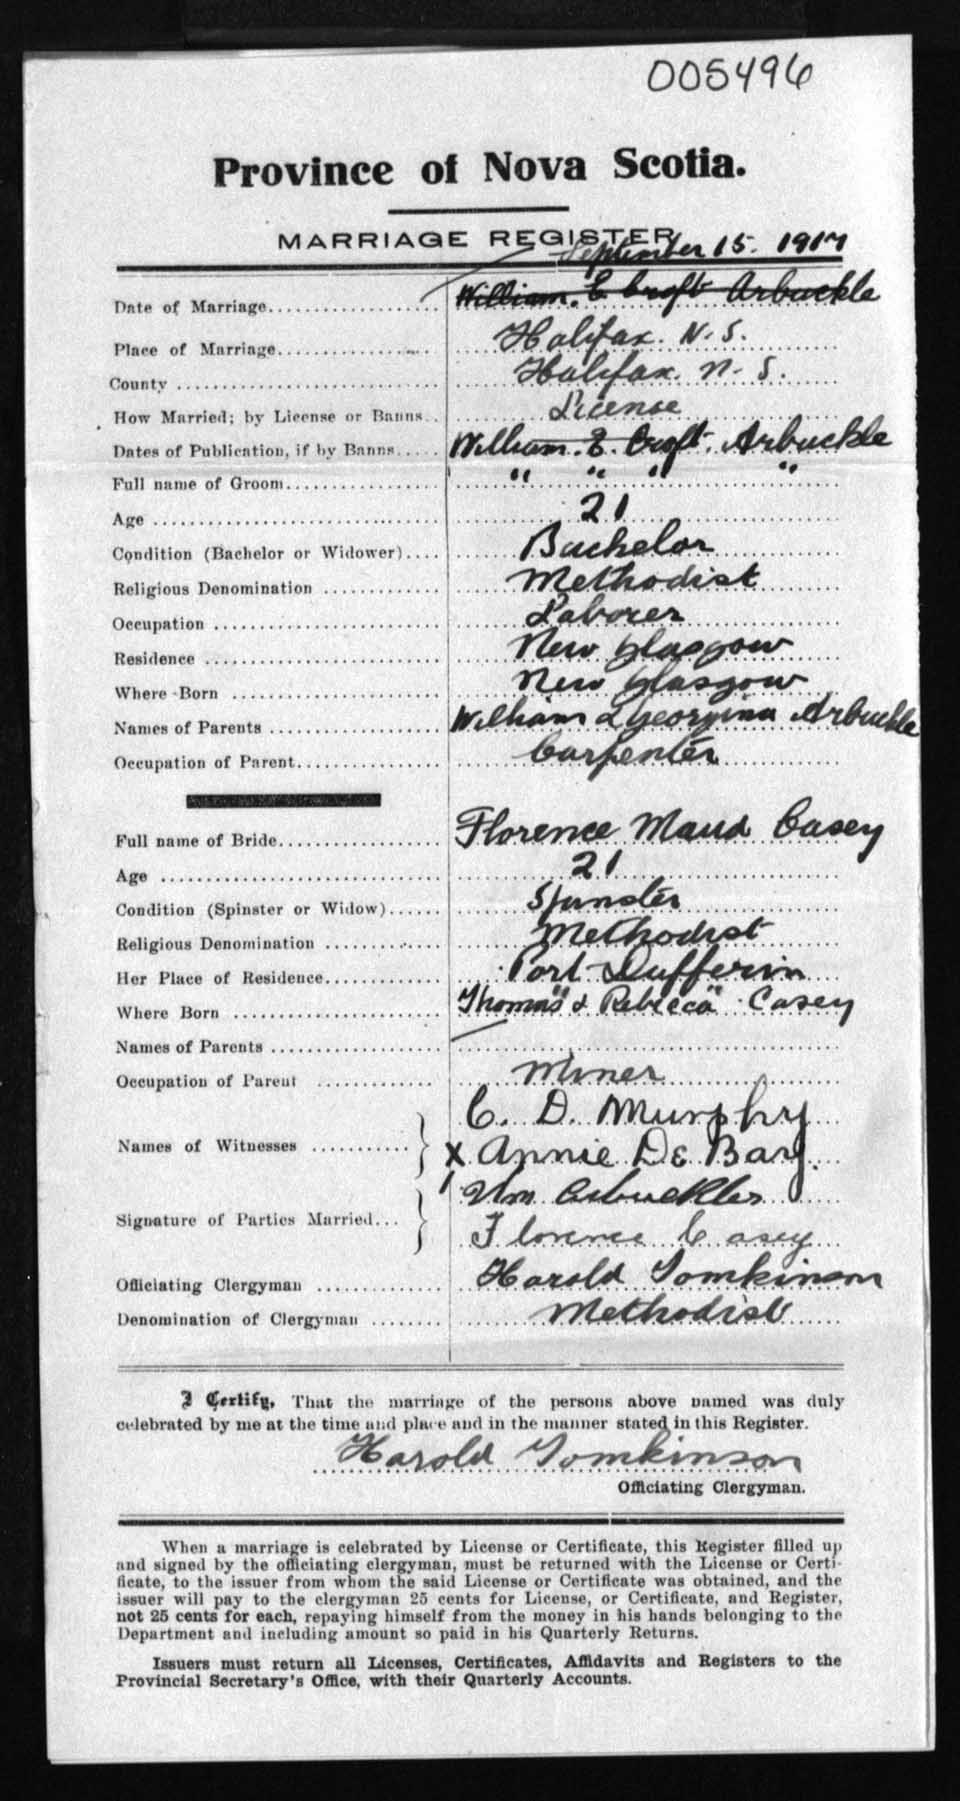 005496
Province of Nova Scotia.
MARRIAGE REGISTER
September 15. 1917
Date of Marriage William. E Croft Arbuckle
Place of Marriage Halifax. N. S.
County Halifax. N. S.
How Married; by License or Banns License
Dates of Publication, if by Banns William. E. Croft. Arbuckle
Full name of Groom " " " "
Age 21
Condition (Bachelor or Widower) Bachelor
Religious Denomination Methodist
Occupation Laborer
Residence New Glasgow
Where Born New Glasgow
Names of Parents William & Georgina Arbuckle
Occupation of Parent Carpenter
Full name of Bride Florence Maud Casey
Age 21
Condition (Spinster or Widow) Spinster
Religious Denomination Methodist
Her Place of Residence Port Dufferin
Where Born " "
Thomas & Rebecca Casey
Names of Parents
Occupation of Parent Miner
C. D. Murphy
Names of Witnesses
X Annie De Bay.
Wm Arbuckles
Signature of Parties Married
Florence Casey
Officiating Clergyman Harold Tomkinson
Denomination of Clergyman Methodist
I Certify, That the marriage of the persons above named was duly
celebrated by me at the time and place and in the manner stated in this Register.
Harold Tomkinson
Officiating Clergyman.
When a marriage is celebrated by License or Certificate, this Register filled up
and signed by the officiating clergyman, must be returned with the License or Certi-
ficate, to the issuer from whom the said License or Certificate was obtained, and the
issuer will pay to the clergyman 25 cents for License, or Certificate, and Register,
not 25 cents for each, repaying himself from the money in his hands belonging to the
Department and including amount so paid in his Quarterly Returns.
Issuers must return all Licenses, Certificates, Affidavits and Registers to the
Provincial Secretary's Office, with their Quarterly Accounts.